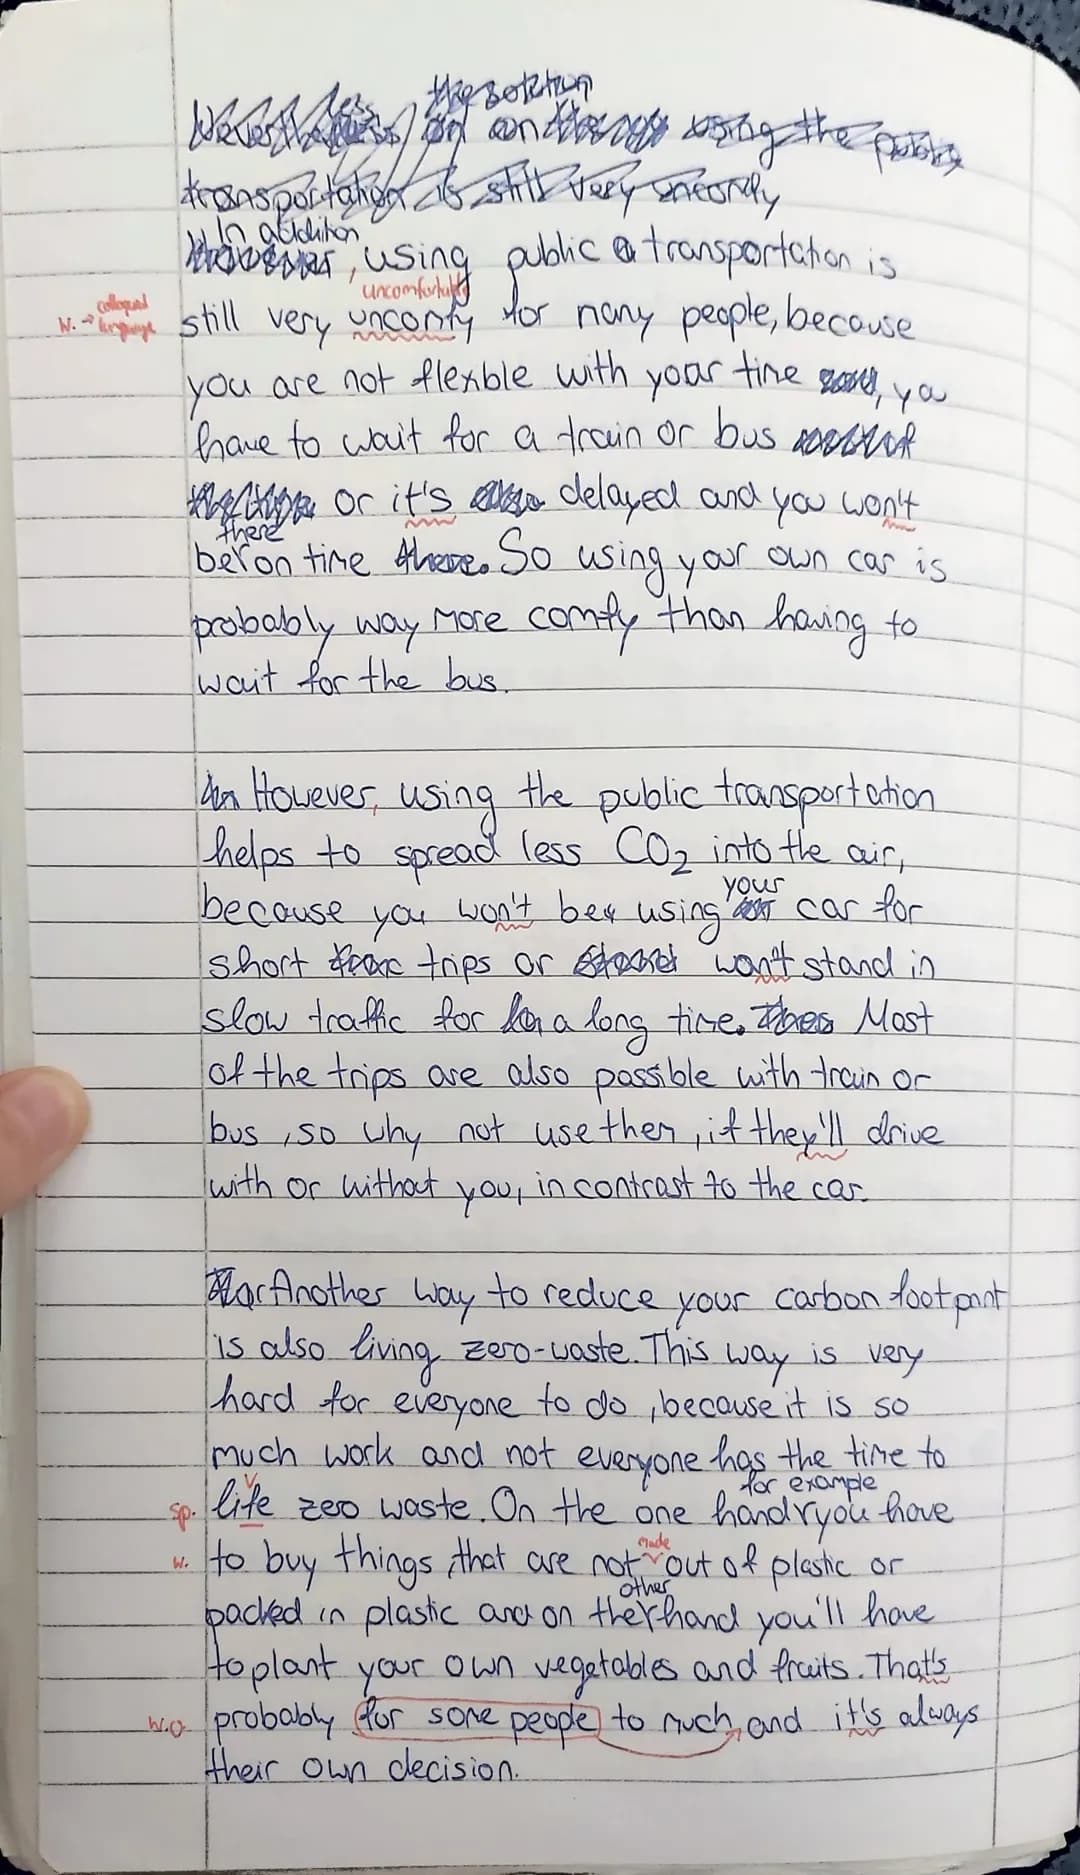 the solution
using the public
transportation is still very uncomfy
In addition
, using public transportation is
uncomfortable
W. → colloquial language
still very uncomfy for many people, because
you are not flexible with your time, you
have to wait for a train or bus
or it's delayed and you won't
there
be on time there. So using your own car is
probably way more comfy than having to
wait for the bus.
However, using the public transportation
helps to spread less CO₂ into the air,
your
because you won't be using car for
short trips or won't stand in
slow traffic for a long time. Most
of the trips are also possible with train or
bus, so why not use them, if they'll drive
with or without you, in contrast to the car.
Another way to reduce your carbon footprint
is also living zero-waste. This way is very
hard for everyone to do, because it is so
much work and not everyone has the time to
for example
v
sp. life zero waste. On the one hand you have
made
W. to buy things, that are not out of plastic or
other
packed in plastic and on the hand you'll have
to plant your own vegetables and fruits. That's
W.O. probably for some people to much, and it's always
their own decision.